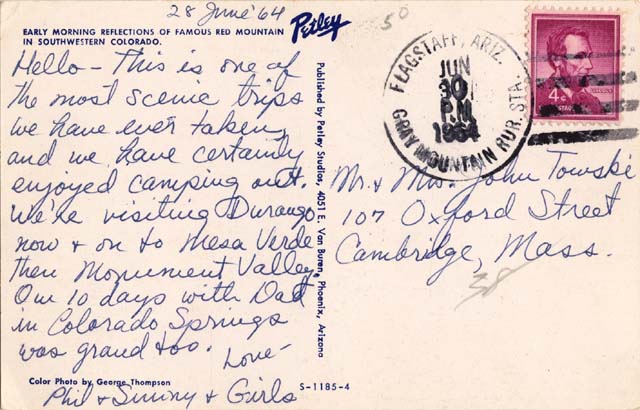 28 June '64
EARLY MORNING REFLECTIONS OF FAMOUS RED MOUNTAIN
IN SOUTHWESTERN COLORADO.
Petley
Hello - This is one of
the most scenic trips
we have ever taken,
and we have certainly
enjoyed camping out.
We're visiting Durango
now + on to Mesa Verde
then Monument Valley.
Our 10 days with Dad
in Colorado Springs
was grand too.
Love-
Phil + Sunny + Girls
Color Photo by George Thompson
Published by Petley Studios, 4051 E. Van Buren, Phoenix, Arizona
S-1185-4
50
FLAGSTAFF, ARIZ.
JUN
30
P.M
1964
GRAY MOUNTAIN RUR. STA.
4¢
Mr. + Mrs. John Towski
107 Oxford Street
Cambridge, Mass.
38